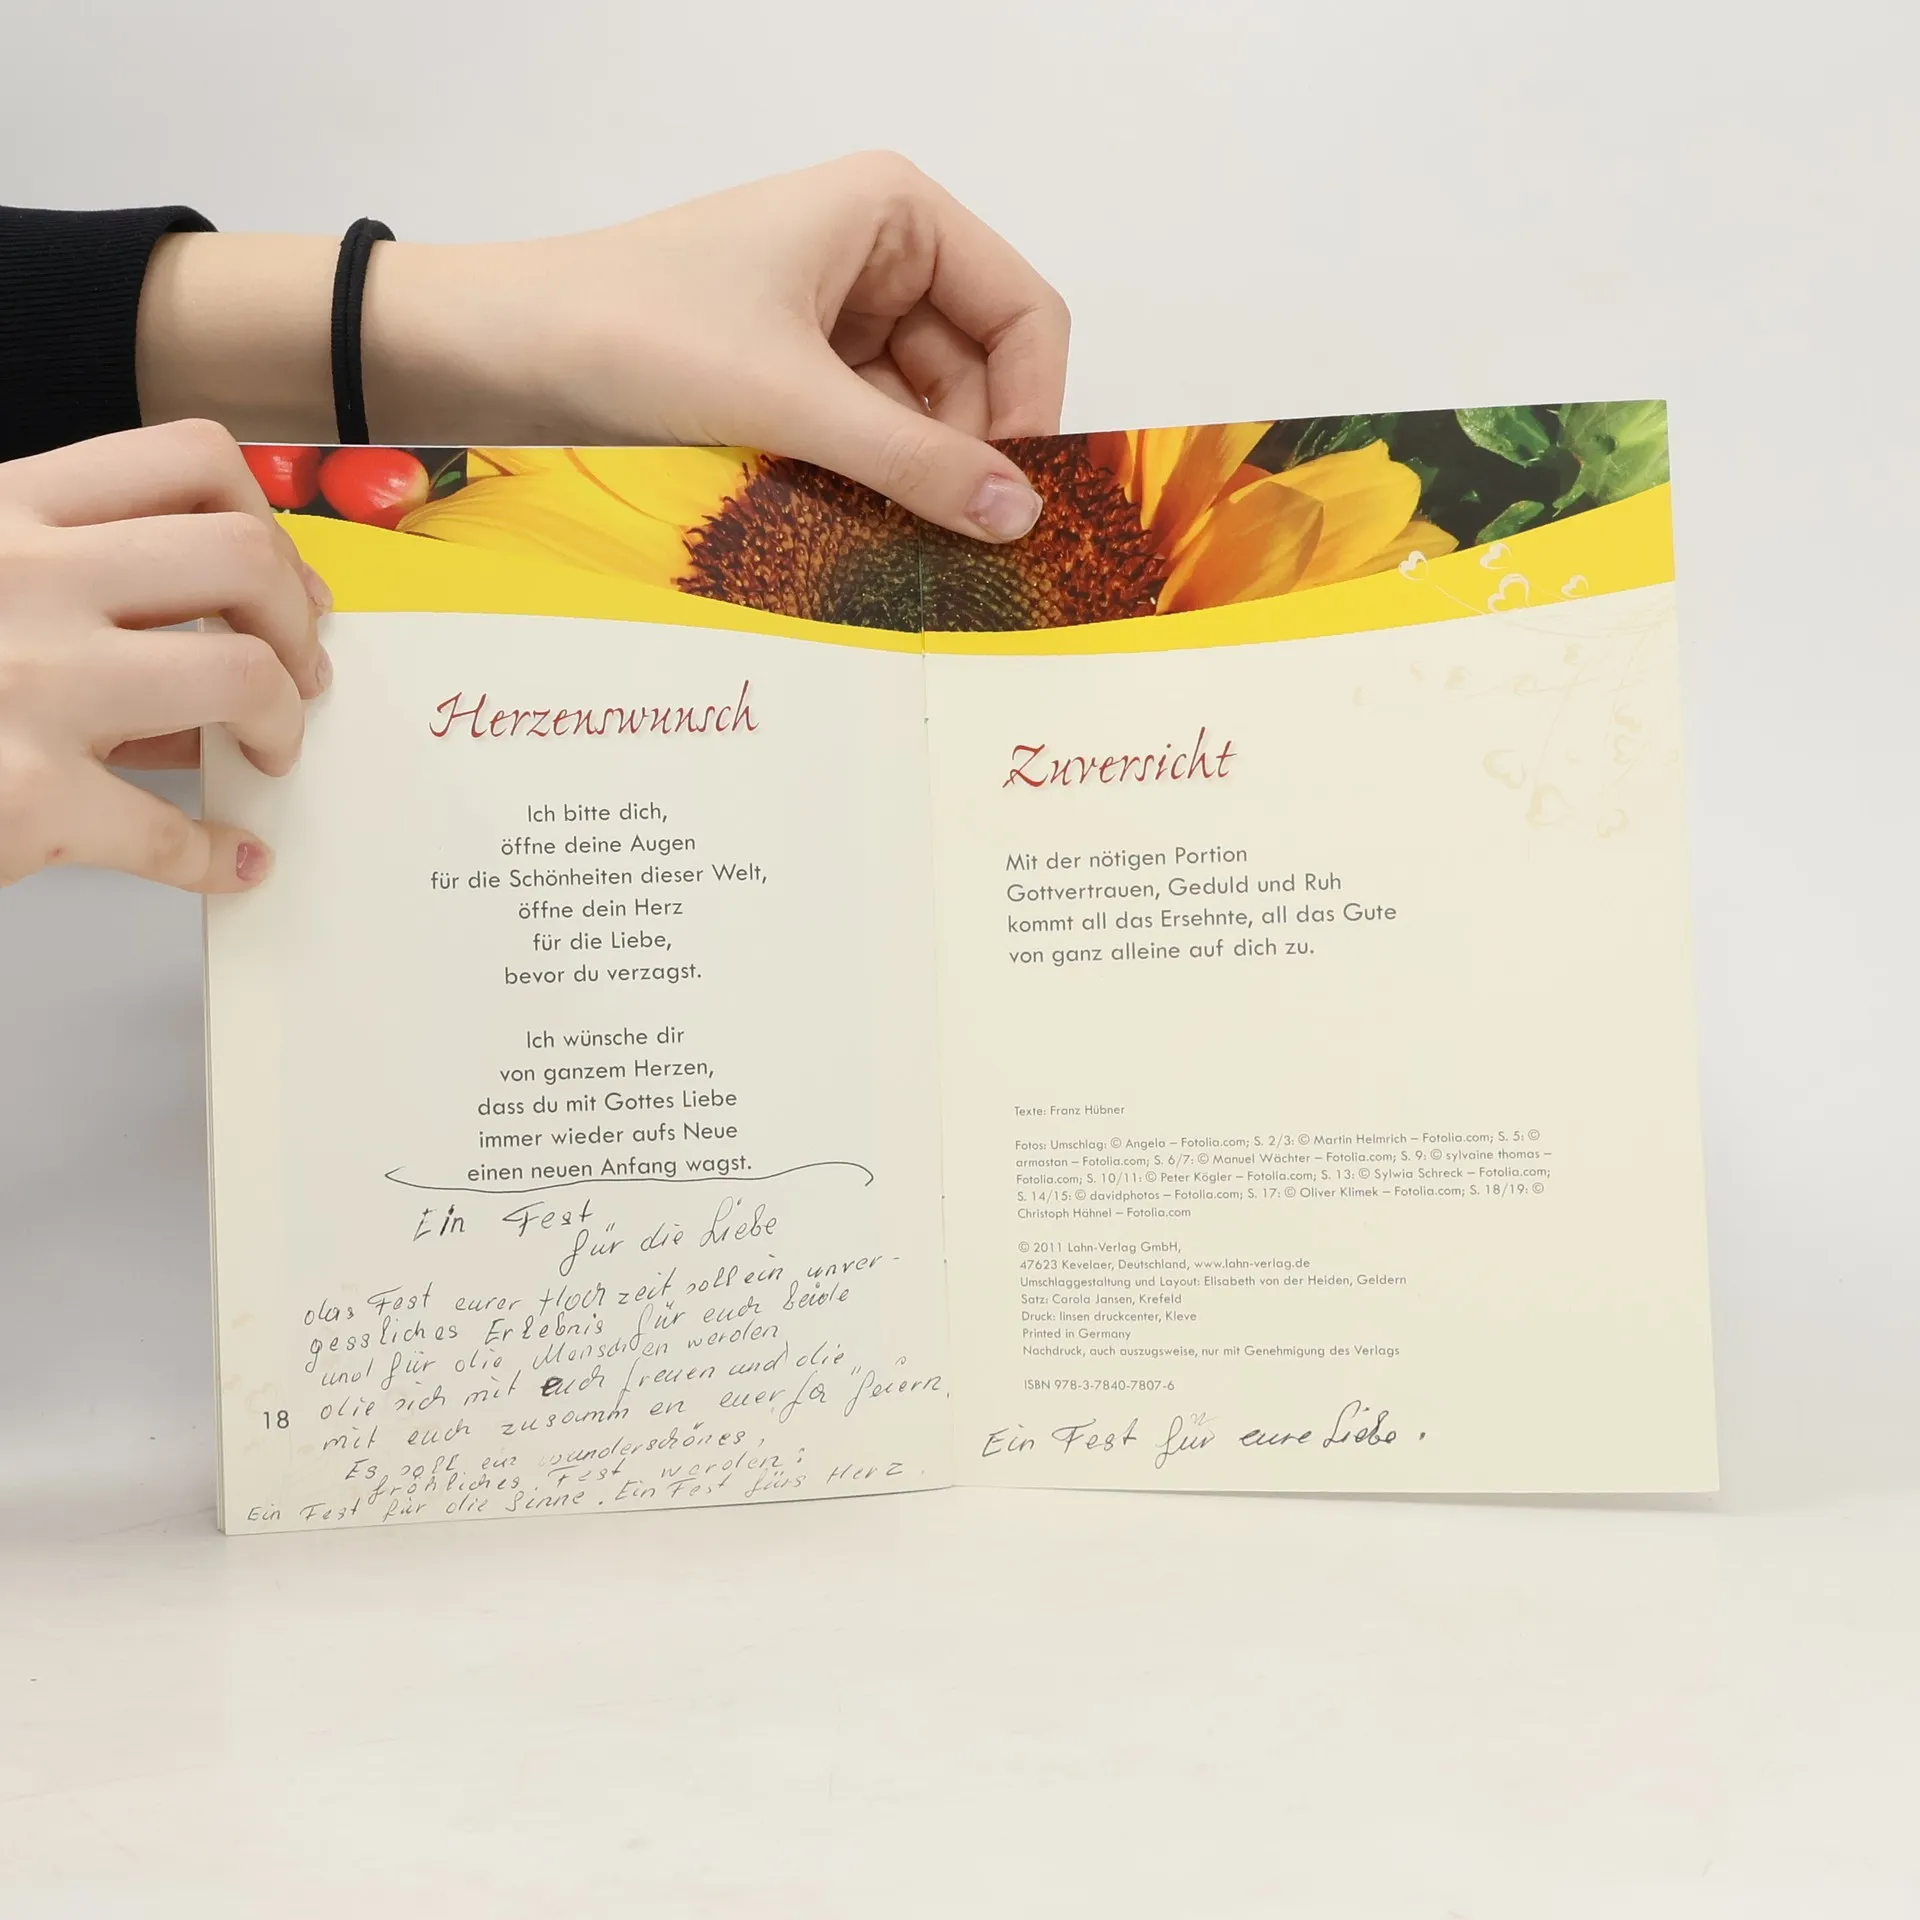 Herzenswunsch
Ich bitte dich,
öffne deine Augen
für die Schönheiten dieser Welt,
öffne dein Herz
für die Liebe,
bevor du verzagst.
Ich wünsche dir
von ganzem Herzen,
dass du mit Gottes Liebe
immer wieder aufs Neue
einen neuen Anfang wagst.
Ein Fest
für die Liebe
das Fest eurer Hochzeit soll ein unver-
gessliches Erlebnis für euch beide
und für die Menschen werden
die sich mit euch freuen und die
mit euch zusammen euer Ja feiern.
Es soll ein wunderschönes,
fröhliches Fest werden:
Ein Fest für die Sinne. Ein Fest fürs Herz.
18
Zuversicht
Mit der nötigen Portion
Gottvertrauen, Geduld und Ruh
kommt all das Ersehnte, all das Gute
von ganz alleine auf dich zu.
Texte: Franz Hübner
Fotos: Umschlag: © Angela – Fotolia.com; S. 2/3: © Martin Helmrich – Fotolia.com; S. 5: ©
armastan – Fotolia.com; S. 6/7: © Manuel Wächter – Fotolia.com; S. 9: © sylvaine thomas –
Fotolia.com; S. 10/11: © Peter Kögler – Fotolia.com; S. 13: © Sylwia Schreck – Fotolia.com;
S. 14/15: © davidphotos – Fotolia.com; S. 17: © Oliver Klimek – Fotolia.com; S. 18/19: ©
Christoph Hähnel – Fotolia.com
© 2011 Lahn-Verlag GmbH,
47623 Kevelaer, Deutschland, www.lahn-verlag.de
Umschlaggestaltung und Layout: Elisabeth von der Heiden, Geldern
Satz: Carola Jansen, Krefeld
Druck: linsen druckcenter, Kleve
Printed in Germany
Nachdruck, auch auszugsweise, nur mit Genehmigung des Verlags
ISBN 978-3-7840-7807-6
Ein Fest für eure Liebe.